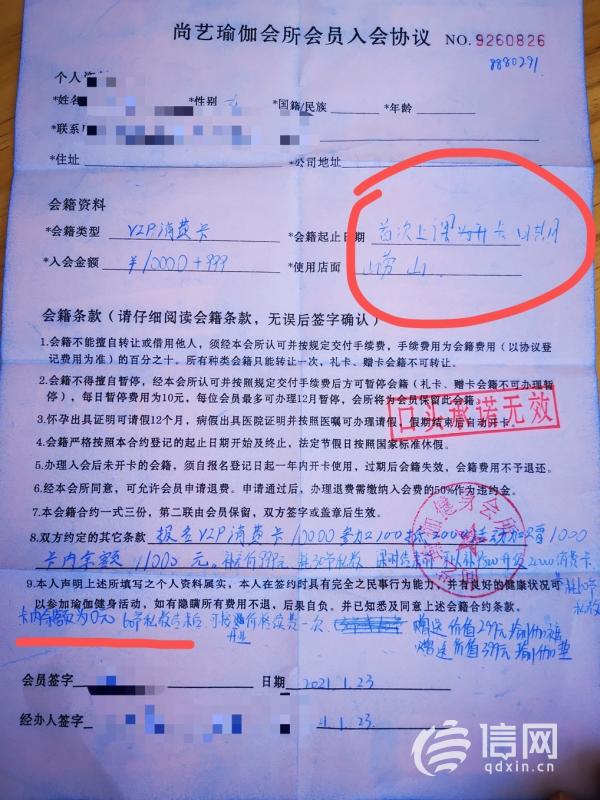 尚艺瑜伽会所会员入会协议 NO.9260826
8880291
个人资
*姓名 *性别 *国籍/民族 *年龄
*联系
*住址 *公司地址
会籍资料
*会籍类型 VIP消费卡 *会籍起止日期 首次上课为开卡日期
*入会金额 ¥10000+999 *使用店面 崂山
会籍条款（请仔细阅读会籍条款，无误后签字确认）
1.会籍不能擅自转让或借用他人，须经本会所认可并按规定交付手续费，手续费用为会籍费用（以协议登
记费用为准）的百分之十。所有种类会籍只能转让一次，礼卡、赠卡会籍不可转让。
2.会籍不得擅自暂停，经本会所认可并按照规定交付手续费后方可暂停会籍（礼卡、赠卡会籍不可办理暂
停），每日暂停费用为10元，每位会员最多可办理12月暂停，会所将为会员保留此会籍。
3.怀孕出具证明可请假12个月，病假出具医院证明并按照医嘱可办理请假，假期结束后自动开卡。
口头承诺无效
4.会籍严格按照本合约登记的起止日期开始及终止，法定节假日按照国家标准休假。
5.办理入会后未开卡的会籍，须自报名登记日起一年内开卡使用，过期后会籍失效，会籍费用不予退还。
6.经本会所同意，可允许会员申请退费。申请通过后，办理退费需缴纳入会费的50%作为违约金。
7.本会籍合约一式三份，第二联由会员保留，双方签字或盖章后生效。
8.双方约定的其它条款 报名VIP消费卡10000 2000 1000
卡内余额 11000元。 999元 30节私教
9.本人声明上述所填写之个人资料属实，本人在签约时具有完全之民事行为能力，并有良好的健康状况可
以参加瑜伽健身活动，如有隐瞒所有费用不退，后果自负。并已知悉及同意上述会籍合约条款。
卡内余额为0元 60节私教 一次 赠送价值299元瑜伽
赠送价值399元瑜伽垫
会员签字 日期 2021.1.23
经办人签字 1.23
信网
qdxin.cn